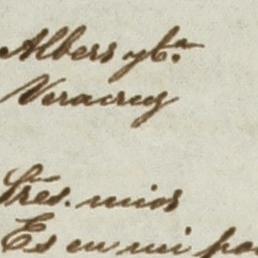 Albers y Cª.
Veracruz
Sres. mios
Es en mi po